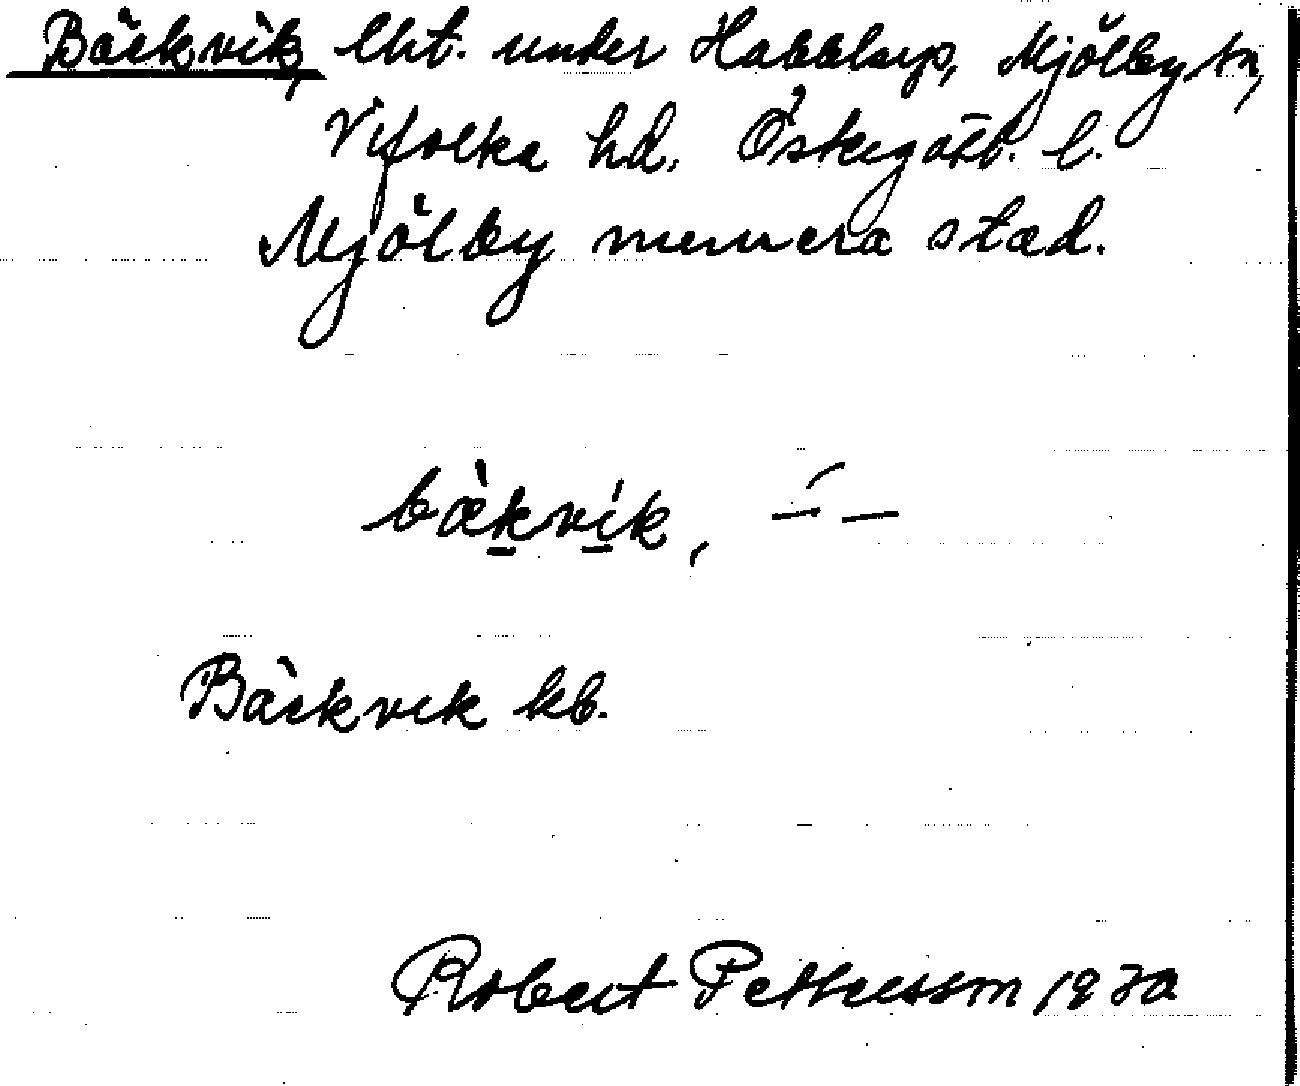 Bäckvik, lht. under Habblarp, Mjölby sn,
Vifolka hd. Östergötl. l.
Mjölby numera stad.
bàkvík, –́ –
Bäckvik kb.
Robert Pettersson 1930